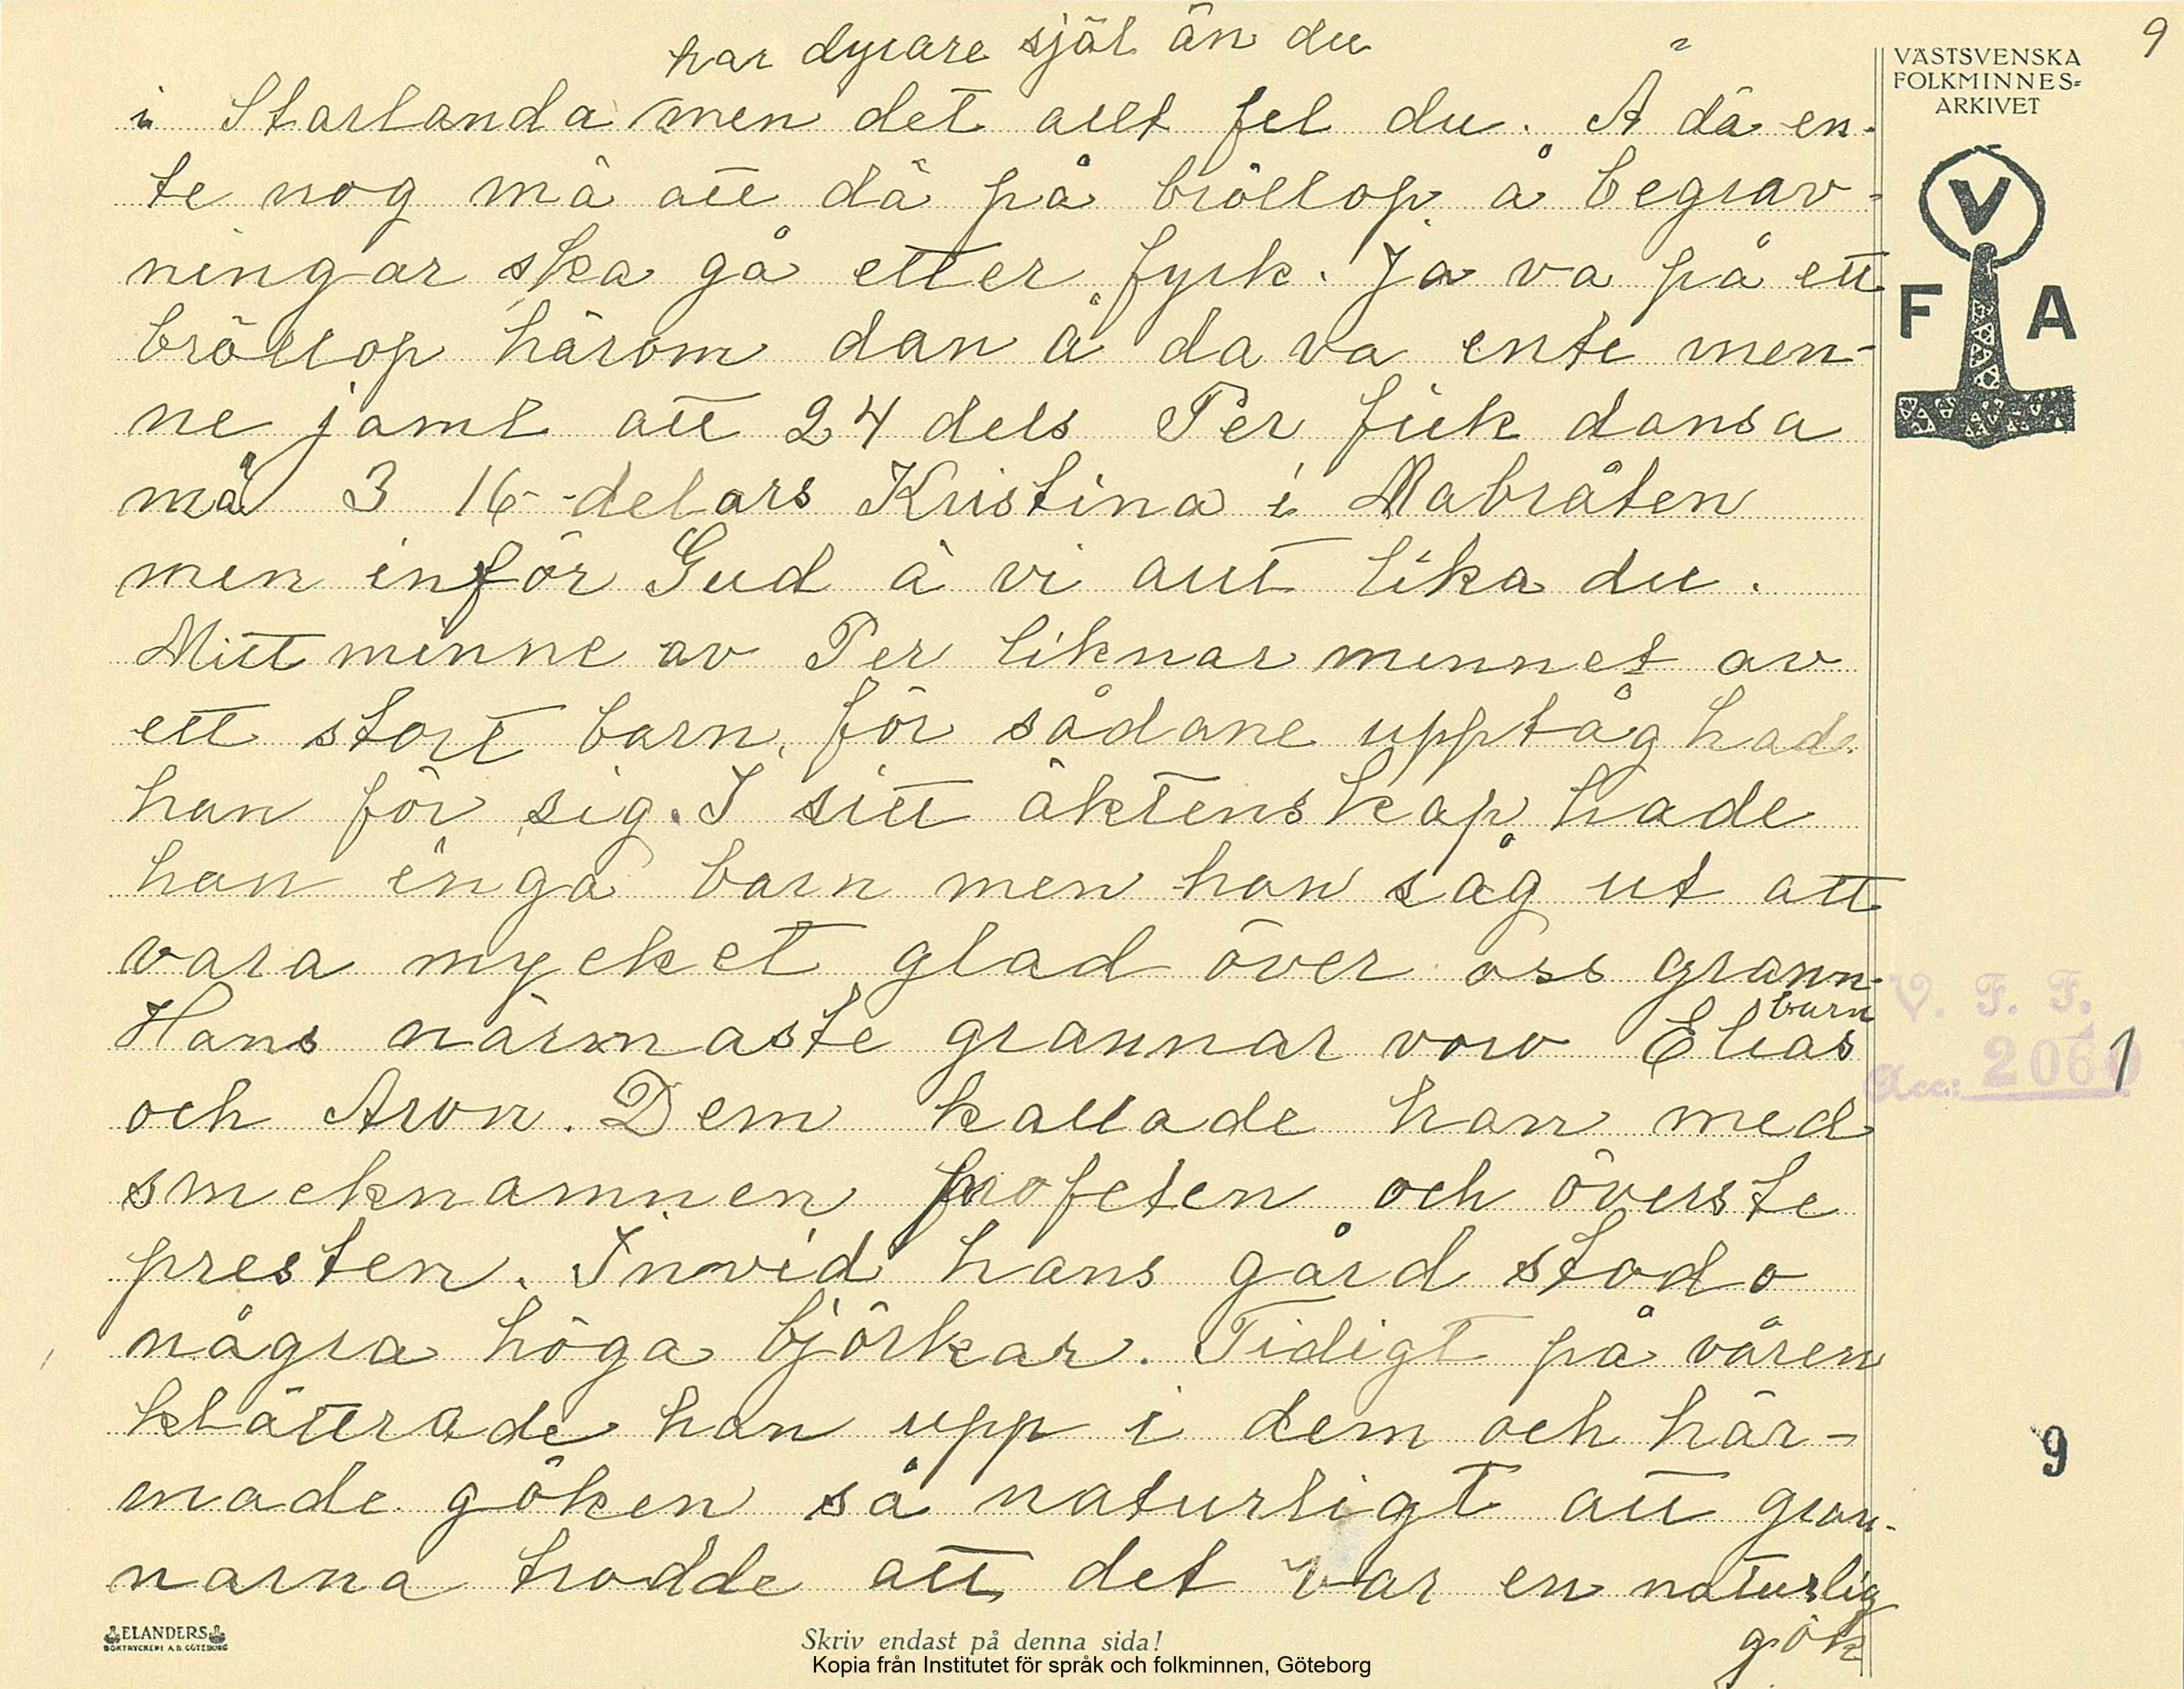 9
har dyrare själ än du
i Starlanda men det allt fel du. Ä dä en-
te nog mä att dä på bröllop å begrav-
ningar ska gå etter fyrk. Ja va på ett
bröllop härom dan å dä va ente men-
ne jaml att 24 dels Per fick dansa
mä 3 16-delars Kristina i Mabråten
men inför Gud ä vi allt lika du.
Mitt minne av Per liknar minnet av
ett stort barn, för sådane upptåg hade
han för sig. I sitt äktenskap hade
han inga barn men han såg ut att
vara mycket glad över oss grann-
barn
Hans närmaste grannar voro Elias
och Aron. Dem kallade han med
smeknamnen profeten och överste
presten. Invid hans gård stodo
några höga björkar. Tidigt på våren
klättrade han upp i dem och här-
made göken så naturligt att gran-
narna trodde att det var en naturlig
gök
VÄSTSVENSKA
FOLKMINNES=
ARKIVET
V
F A
V. F. F.
Acc: 2060 1
9
ELANDERS
BOKTRYCKERI A.B. GÖTEBORG
Skriv endast på denna sida!
Kopia från Institutet för språk och folkminnen, Göteborg